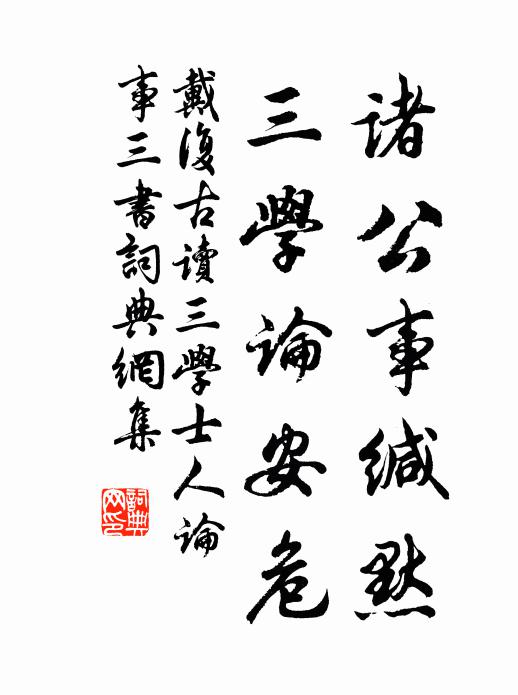 諸公事緘默
三學論安危
戴復古讀三學士人論
事三書詞典網集
詞典網印